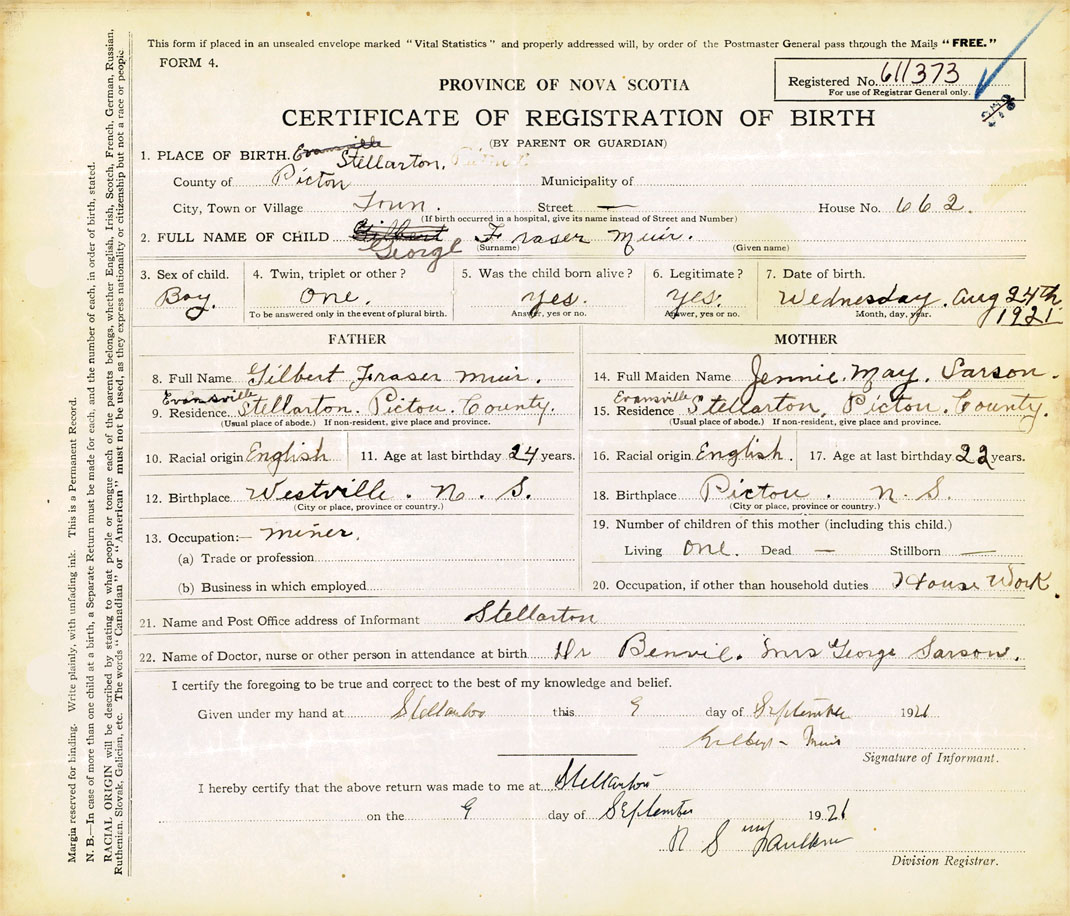 This form if placed in an unsealed envelope marked "Vital Statistics" and properly addressed will, by order of the Postmaster General pass through the Mails "FREE."
FORM 4.
Registered No. 611373
For use of Registrar General only.
PROVINCE OF NOVA SCOTIA
CERTIFICATE OF REGISTRATION OF BIRTH
(BY PARENT OR GUARDIAN)
1. PLACE OF BIRTH. Evansville Stellarton,
County of Picton Municipality of
City, Town or Village Town. Street — House No. 662.
(If birth occurred in a hospital, give its name instead of Street and Number)
2. FULL NAME OF CHILD Gilbert George Fraser Muir.
(Surname) (Given name)
3. Sex of child. 4. Twin, triplet or other? 5. Was the child born alive? 6. Legitimate? 7. Date of birth.
Boy. One. yes. yes. Wednesday. Aug 24th 1921
To be answered only in the event of plural birth. Answer, yes or no. Answer, yes or no. Month, day, year.
FATHER
8. Full Name Gilbert Fraser Muir.
9. Residence Evansville Stellarton. Picton. County.
(Usual place of abode.) If non-resident, give place and province.
10. Racial origin English 11. Age at last birthday 24 years.
12. Birthplace Westville. N. S.
(City or place, province or country.)
13. Occupation:— miner.
(a) Trade or profession
(b) Business in which employed
MOTHER
14. Full Maiden Name Jennie. May. Sarson.
15. Residence Evansville Stellarton, Picton. County.
(Usual place of abode.) If non-resident, give place and province.
16. Racial origin English. 17. Age at last birthday 22 years.
18. Birthplace Picton. N. S.
(City or place, province or country.)
19. Number of children of this mother (including this child.)
Living One. Dead — Stillborn —
20. Occupation, if other than household duties House Work.
21. Name and Post Office address of Informant Stellarton
22. Name of Doctor, nurse or other person in attendance at birth Dr Benvie. Mrs George Sarson.
I certify the foregoing to be true and correct to the best of my knowledge and belief.
Given under my hand at Stellarton this 9 day of September 1921
Gilbert Muir
Signature of Informant.
I hereby certify that the above return was made to me at Stellarton
on the 9 day of September 1921
N S Faulkner
Division Registrar.
Margin reserved for binding. Write plainly, with unfading ink. This is a Permanent Record.
N. B.—In case of more than one child at a birth, a Separate Return must be made for each, and the number of each, in order of birth, stated.
RACIAL ORIGIN will be described by stating to what people or tongue each of the parents belongs, whether English, Irish, Scotch, French, German, Russian,
Ruthenian, Slovak, Galician, etc. The words "Canadian" or "American" must not be used, as they express nationality or citizenship but not a race or people